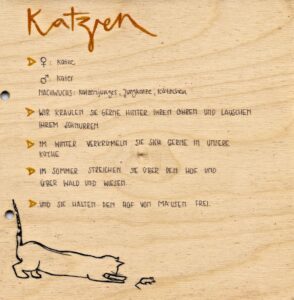 Katzen
♀: Katze
♂: Kater
Nachwuchs: Katzenjunges, Jungkatze, Kätzchen
Wir kraulen sie gerne hinter ihren Ohren und lauschen
ihrem Schnurren
Im Winter verkrümeln sie sich gerne in unsere
Küche
Im Sommer streichen sie über den Hof und
über Wald und Wiesen.
Und sie halten den Hof von Mäusen frei.